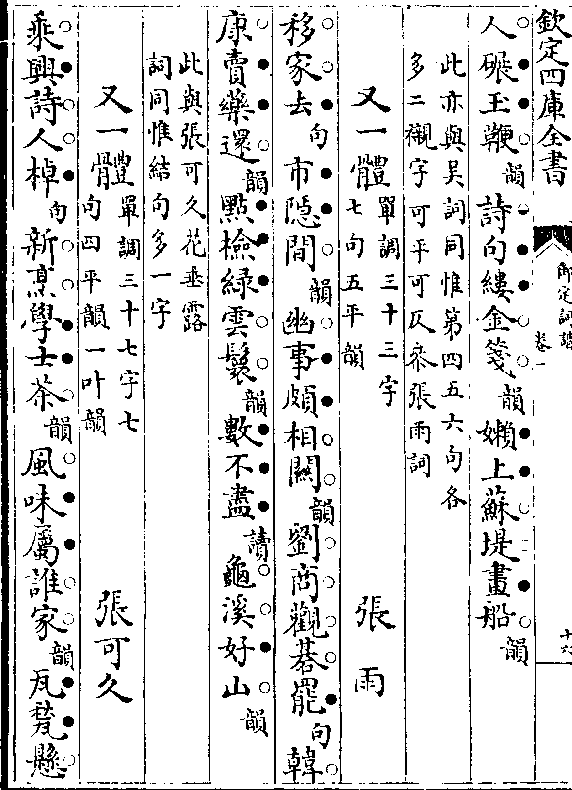 欽定四庫全書
御定詞譜
卷一
十六
人碾玉鞭韻詩句縷金箋韻嬾上蘇堤畫船韻
此亦與吴詞同惟第四五六句各
多二襯字可平可仄叅張雨詞
又一體單調三十三字七句五平韻 張雨
移家去句市隠間韻幽事頗相關韻劉商觀碁罷句韓
康賣藥還韻點檢緑雲鬟韻數不盡讀龜溪好山韻
此與張可久花垂露
詞同惟結句多一字
又一體單調三十七字七句四平韻一叶韻 張可久
乘興詩人棹句新烹學士茶韻風味屬誰家韻瓦甃懸